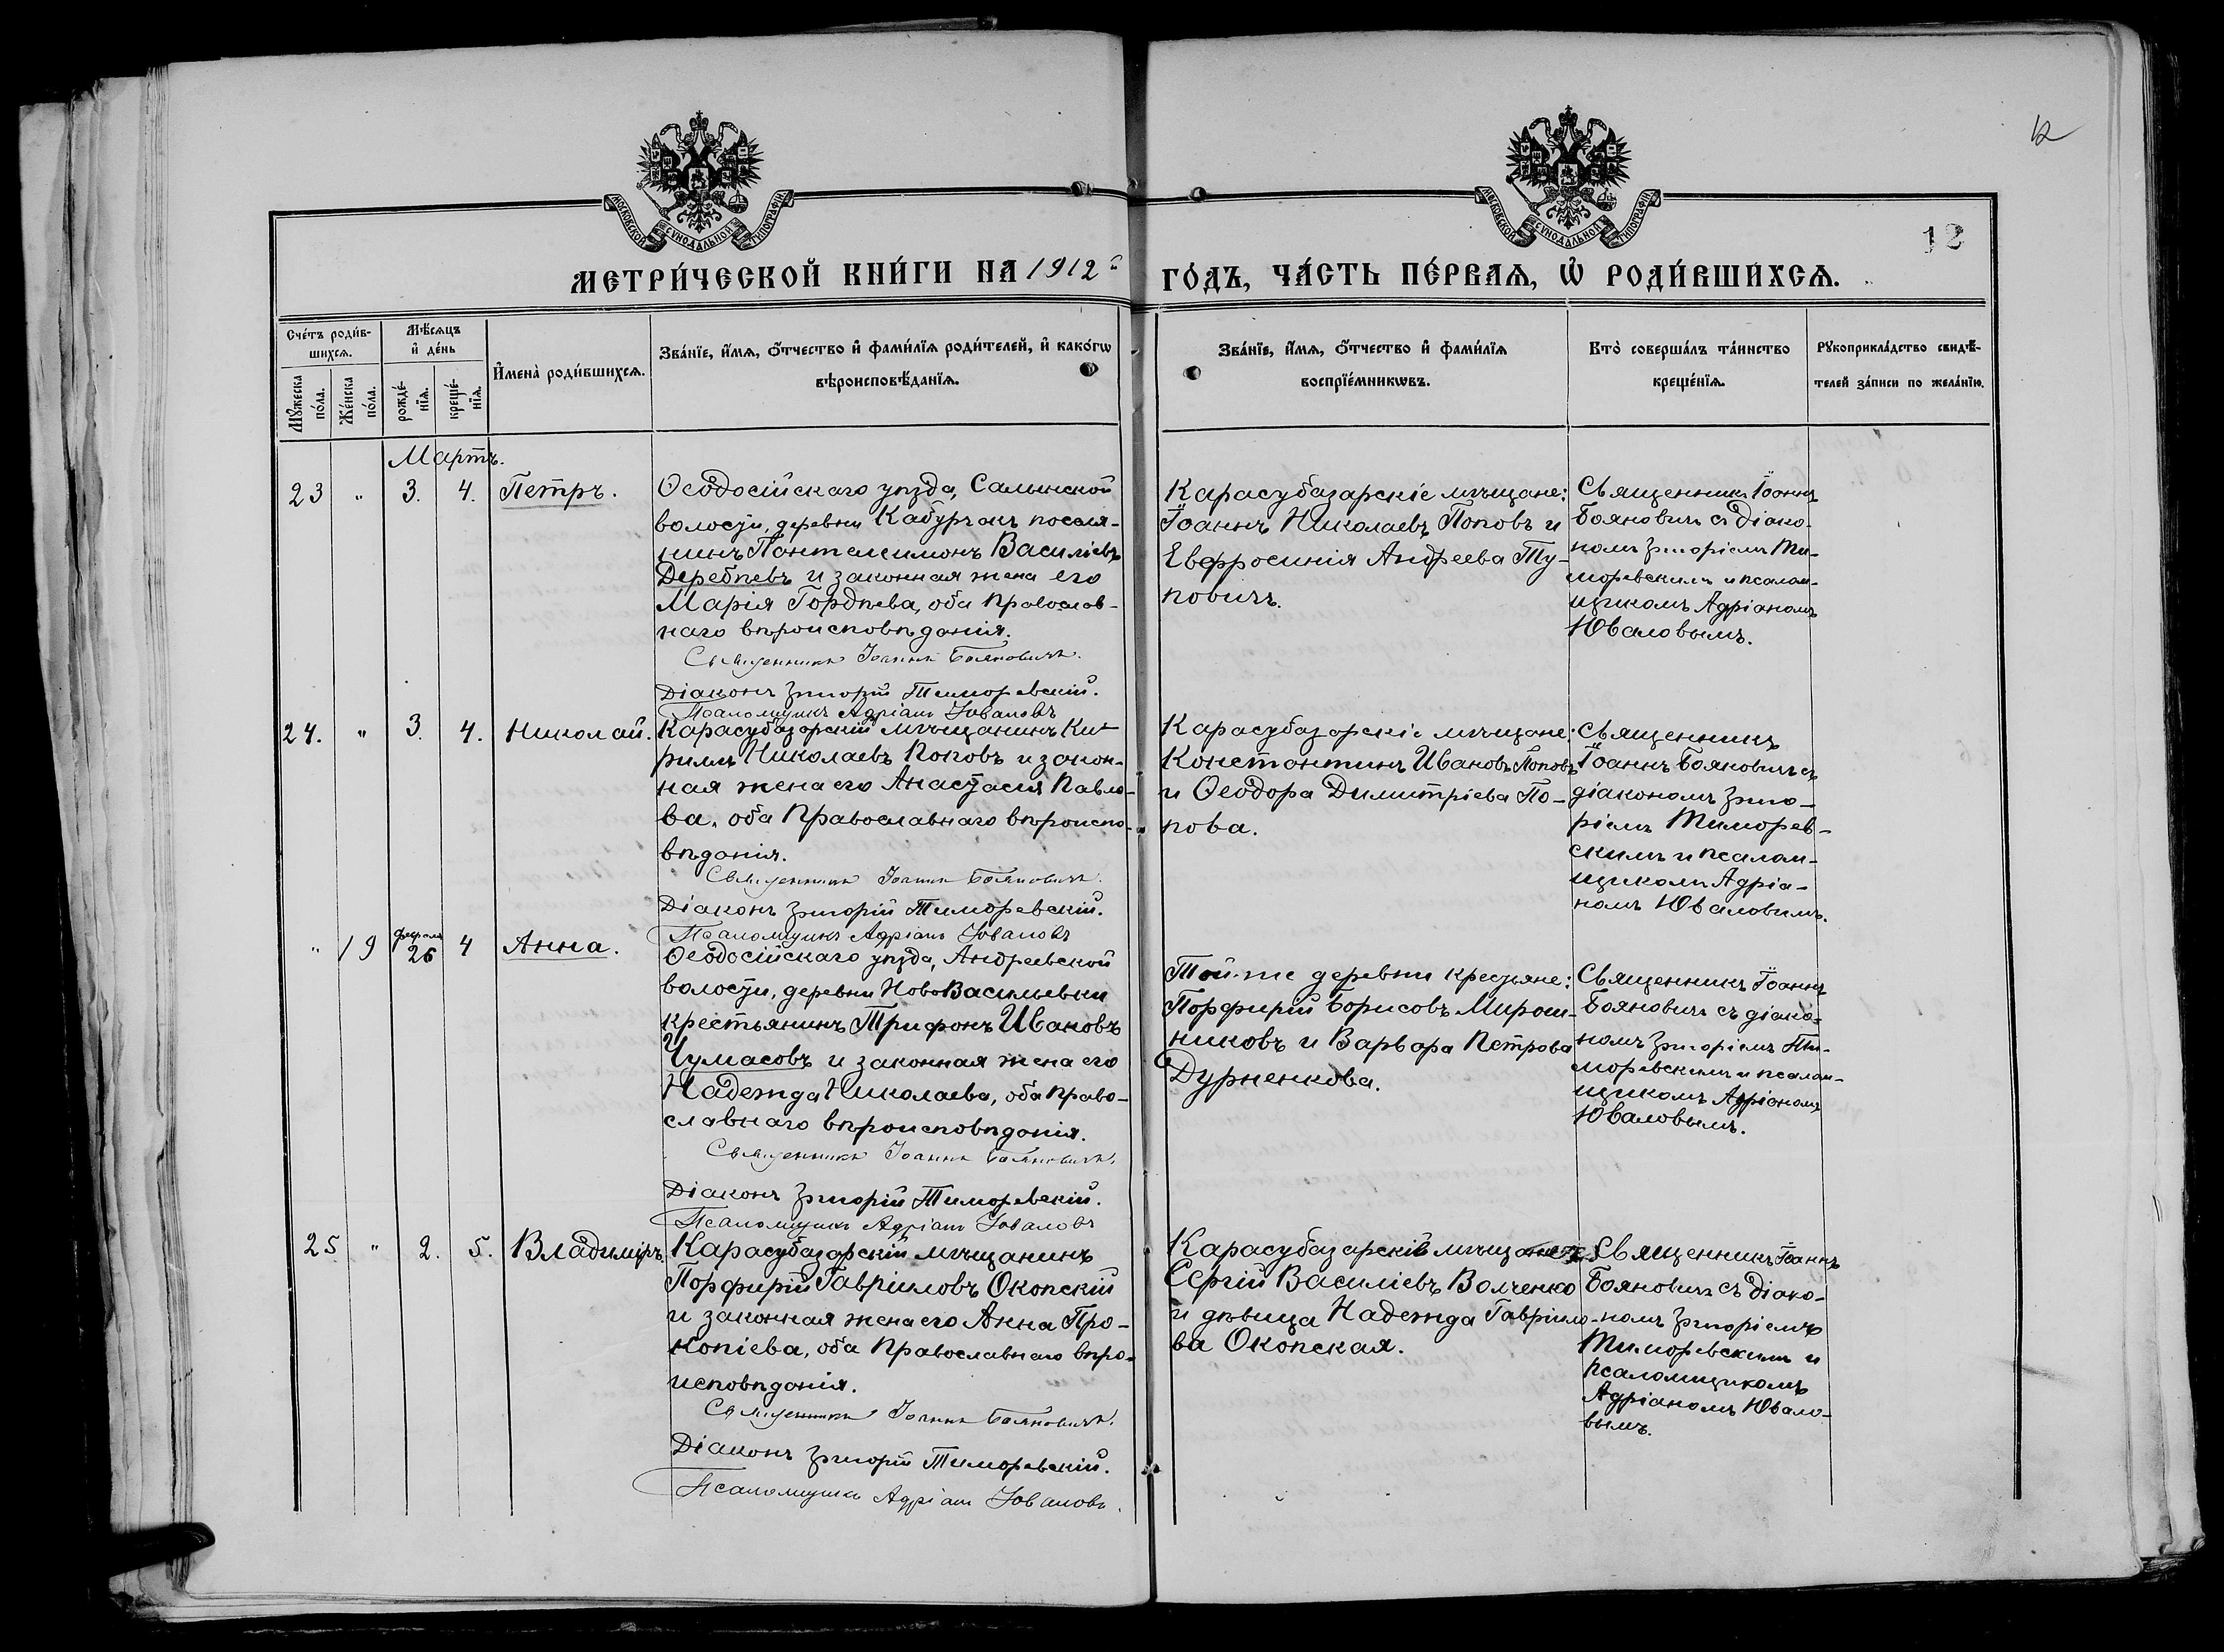 12
12
МОСКОВСКОЙ СѴНОДАЛЬНОЙ ТИПОГРАФІИ
МОСКОВСКОЙ СѴНОДАЛЬНОЙ ТИПОГРАФІИ
МЕТРИ́ЧЕСКОЙ КНИ́ГИ НА 1912й
ГО́ДЪ, ЧА́СТЬ ПЕ́РВАѦ, Ѡ҆ РОДИ́ВШИХСѦ.
Сче́тъ роди́в-
шихсѧ.
Мꙋ́жеска по́ла.
Же́нска по́ла.
Мѣ́сѧцъ
и҆ де́нь
рожде́-нїѧ.
креще́-нїѧ.
И҆мена̀ роди́вшихсѧ.
Зва́нїе, и҆́мѧ, ѻ҆́тчество и҆ фами́лїѧ роди́телей, и҆ како́гѡ
вѣроисповѣ́данїѧ.
Зва́нїе, и҆́мѧ, ѻ҆́тчество и҆ фами́лїѧ
воспрїе́мникѡвъ.
Кто̀ соверша́лъ та́инство
креще́нїѧ.
Рꙋкоприкла́дство свидѣ́-
телей за́писи по жела́нїю.
Мартъ.
23 " 3. 4. Петръ.
Ѳеодосійскаго уѣзда, Салынской
волости, деревни Кабурчакъ поселя-
нинъ Пантелеимонъ Василіевъ
Деребѣевъ и законная жена его
Марія Гордѣева, оба православ-
наго вѣроисповѣданія.
Священникъ Іоаннъ Бояновичъ.
Діаконъ Григорій Тиморевскій.
Псаломщикъ Адріанъ Юваловъ
Карасубазарскіе мѣщане:
Іоаннъ Николаевъ Поповъ и
Евфросинія Андреева Ту-
повичъ.
Священникъ Іоаннъ
Бояновичъ съ діако-
номъ Григоріемъ Ти-
моревскимъ и псалом-
щикомъ Адріаномъ
Юваловымъ.
24. " 3. 4. Николай.
Карасубазарскій мѣщанинъ Ки-
риллъ Николаевъ Поповъ и закон-
ная жена его Анастасія Павло-
ва, оба Православнаго вѣроиспо-
вѣданія.
Священникъ Іоаннъ Бояновичъ.
Діаконъ Григорій Тиморевскій.
Псаломщикъ Адріанъ Юваловъ
Карасубазарскіе мѣщане:
Константинъ Ивановъ Поповъ
и Ѳеодора Димитріева По-
пова.
Священникъ
Іоаннъ Бояновичъ съ
діакономъ Григо-
ріемъ Тиморев-
скимъ и псалом-
щикомъ Адріа-
номъ Юваловымъ.
" 19 февраля 26 4 Анна.
Ѳеодосійскаго уѣзда, Андреевской
волости, деревни НовоВасильевки
крестьянинъ Трифонъ Ивановъ
Чумасовъ и законная жена его
Надежда Николаева, оба право-
славнаго вѣроисповѣданія.
Священникъ Іоаннъ Бояновичъ.
Діаконъ Григорій Тиморевскій.
Псаломщикъ Адріанъ Юваловъ
Той-же деревни крестьяне:
Порфирій Борисовъ Мирош-
никовъ и Варвара Петрова
Дурненкова.
Священникъ Іоаннъ
Бояновичъ съ діако-
номъ Григоріемъ Ти-
моревскимъ и псалом-
щикомъ Адріаномъ
Юваловымъ.
25 " 2. 5. Владиміръ.
Карасубазарскій мѣщанинъ
Порфирій Гавріиловъ Окопскій
и законная жена его Анна Про-
копіева, оба Православнаго вѣро-
исповѣданія.
Священникъ Іоаннъ Бояновичъ.
Діаконъ Григорій Тиморевскій.
Псаломщикъ Адріанъ Юваловъ.
Сергій Василіевъ Волченко
и дѣвица Надежда Гавріило-
ва Окопская.
Священникъ Іоаннъ
Бояновичъ съ діако-
номъ Григоріемъ
Тиморевскимъ и
псаломщикомъ
Адріаномъ Ювало-
вымъ.